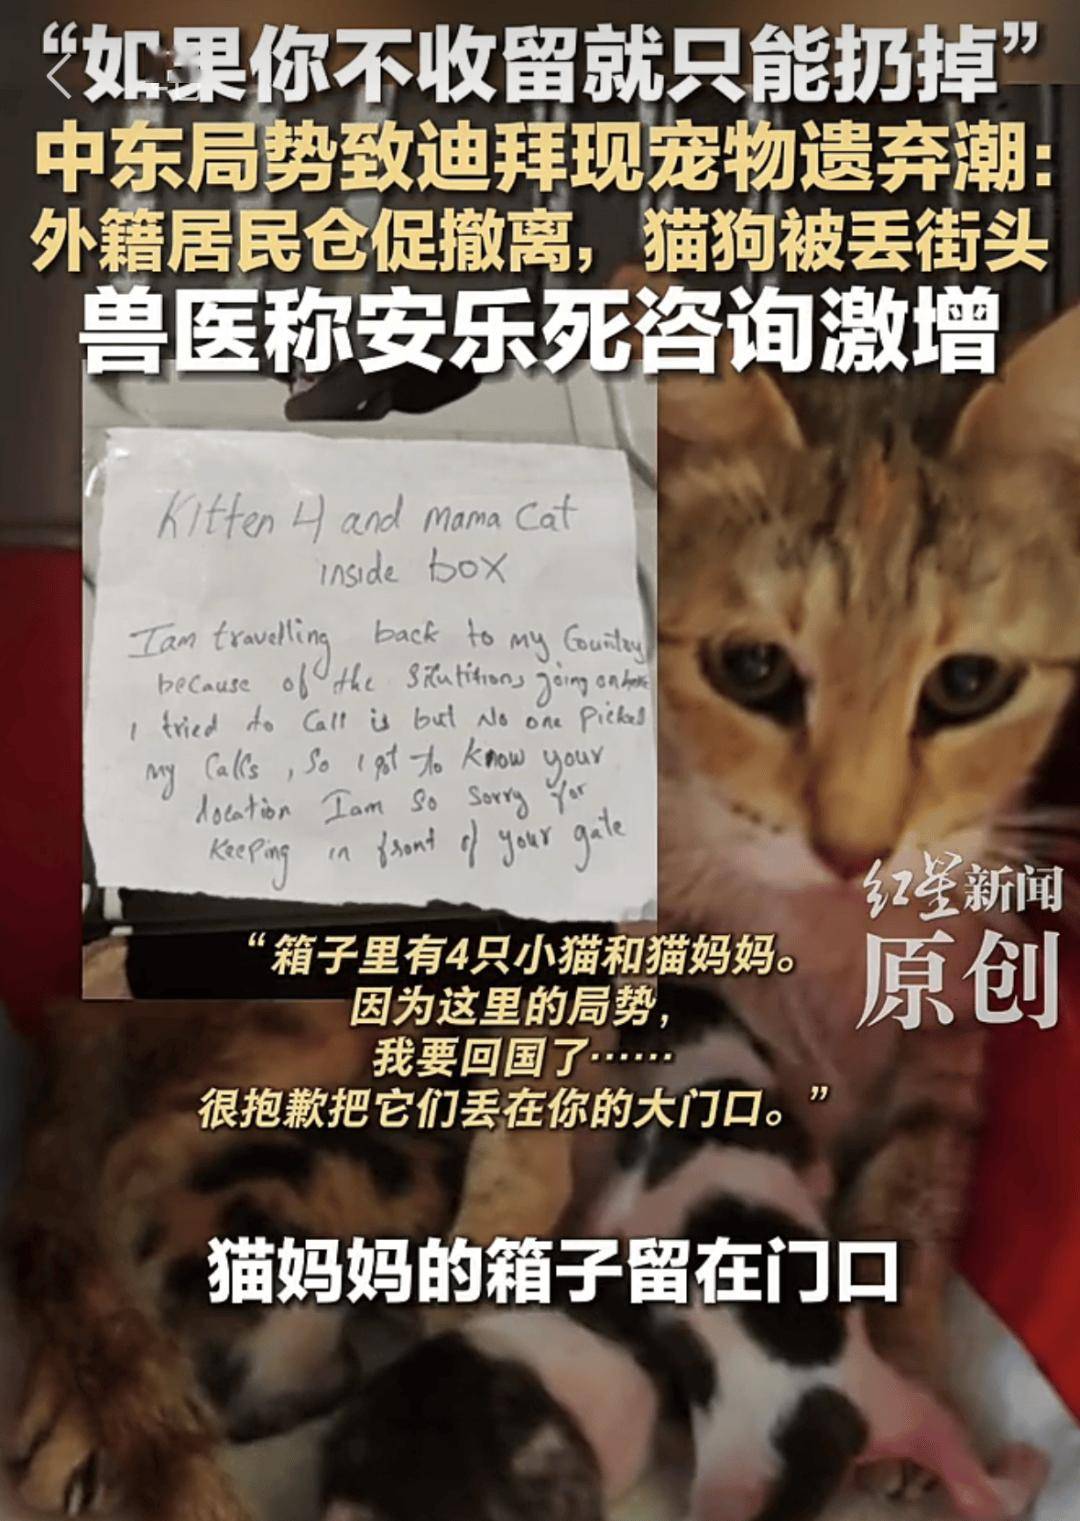 “如果你不收留就只能扔掉”
中东局势致迪拜现宠物遗弃潮：
外籍居民仓促撤离，猫狗被丢街头
兽医称安乐死咨询激增
Kitten 4 and mama Cat
inside box
I am travelling back to my Country
because of the Situtitions going on here
I tried to Call is but No one Picked
my Calls, So I got to Know your
location I am So Sorry for
Keeping in front of your gate
红星新闻
原创
“箱子里有4只小猫和猫妈妈。
因为这里的局势，
我要回国了……
很抱歉把它们丢在你的大门口。”
猫妈妈的箱子留在门口